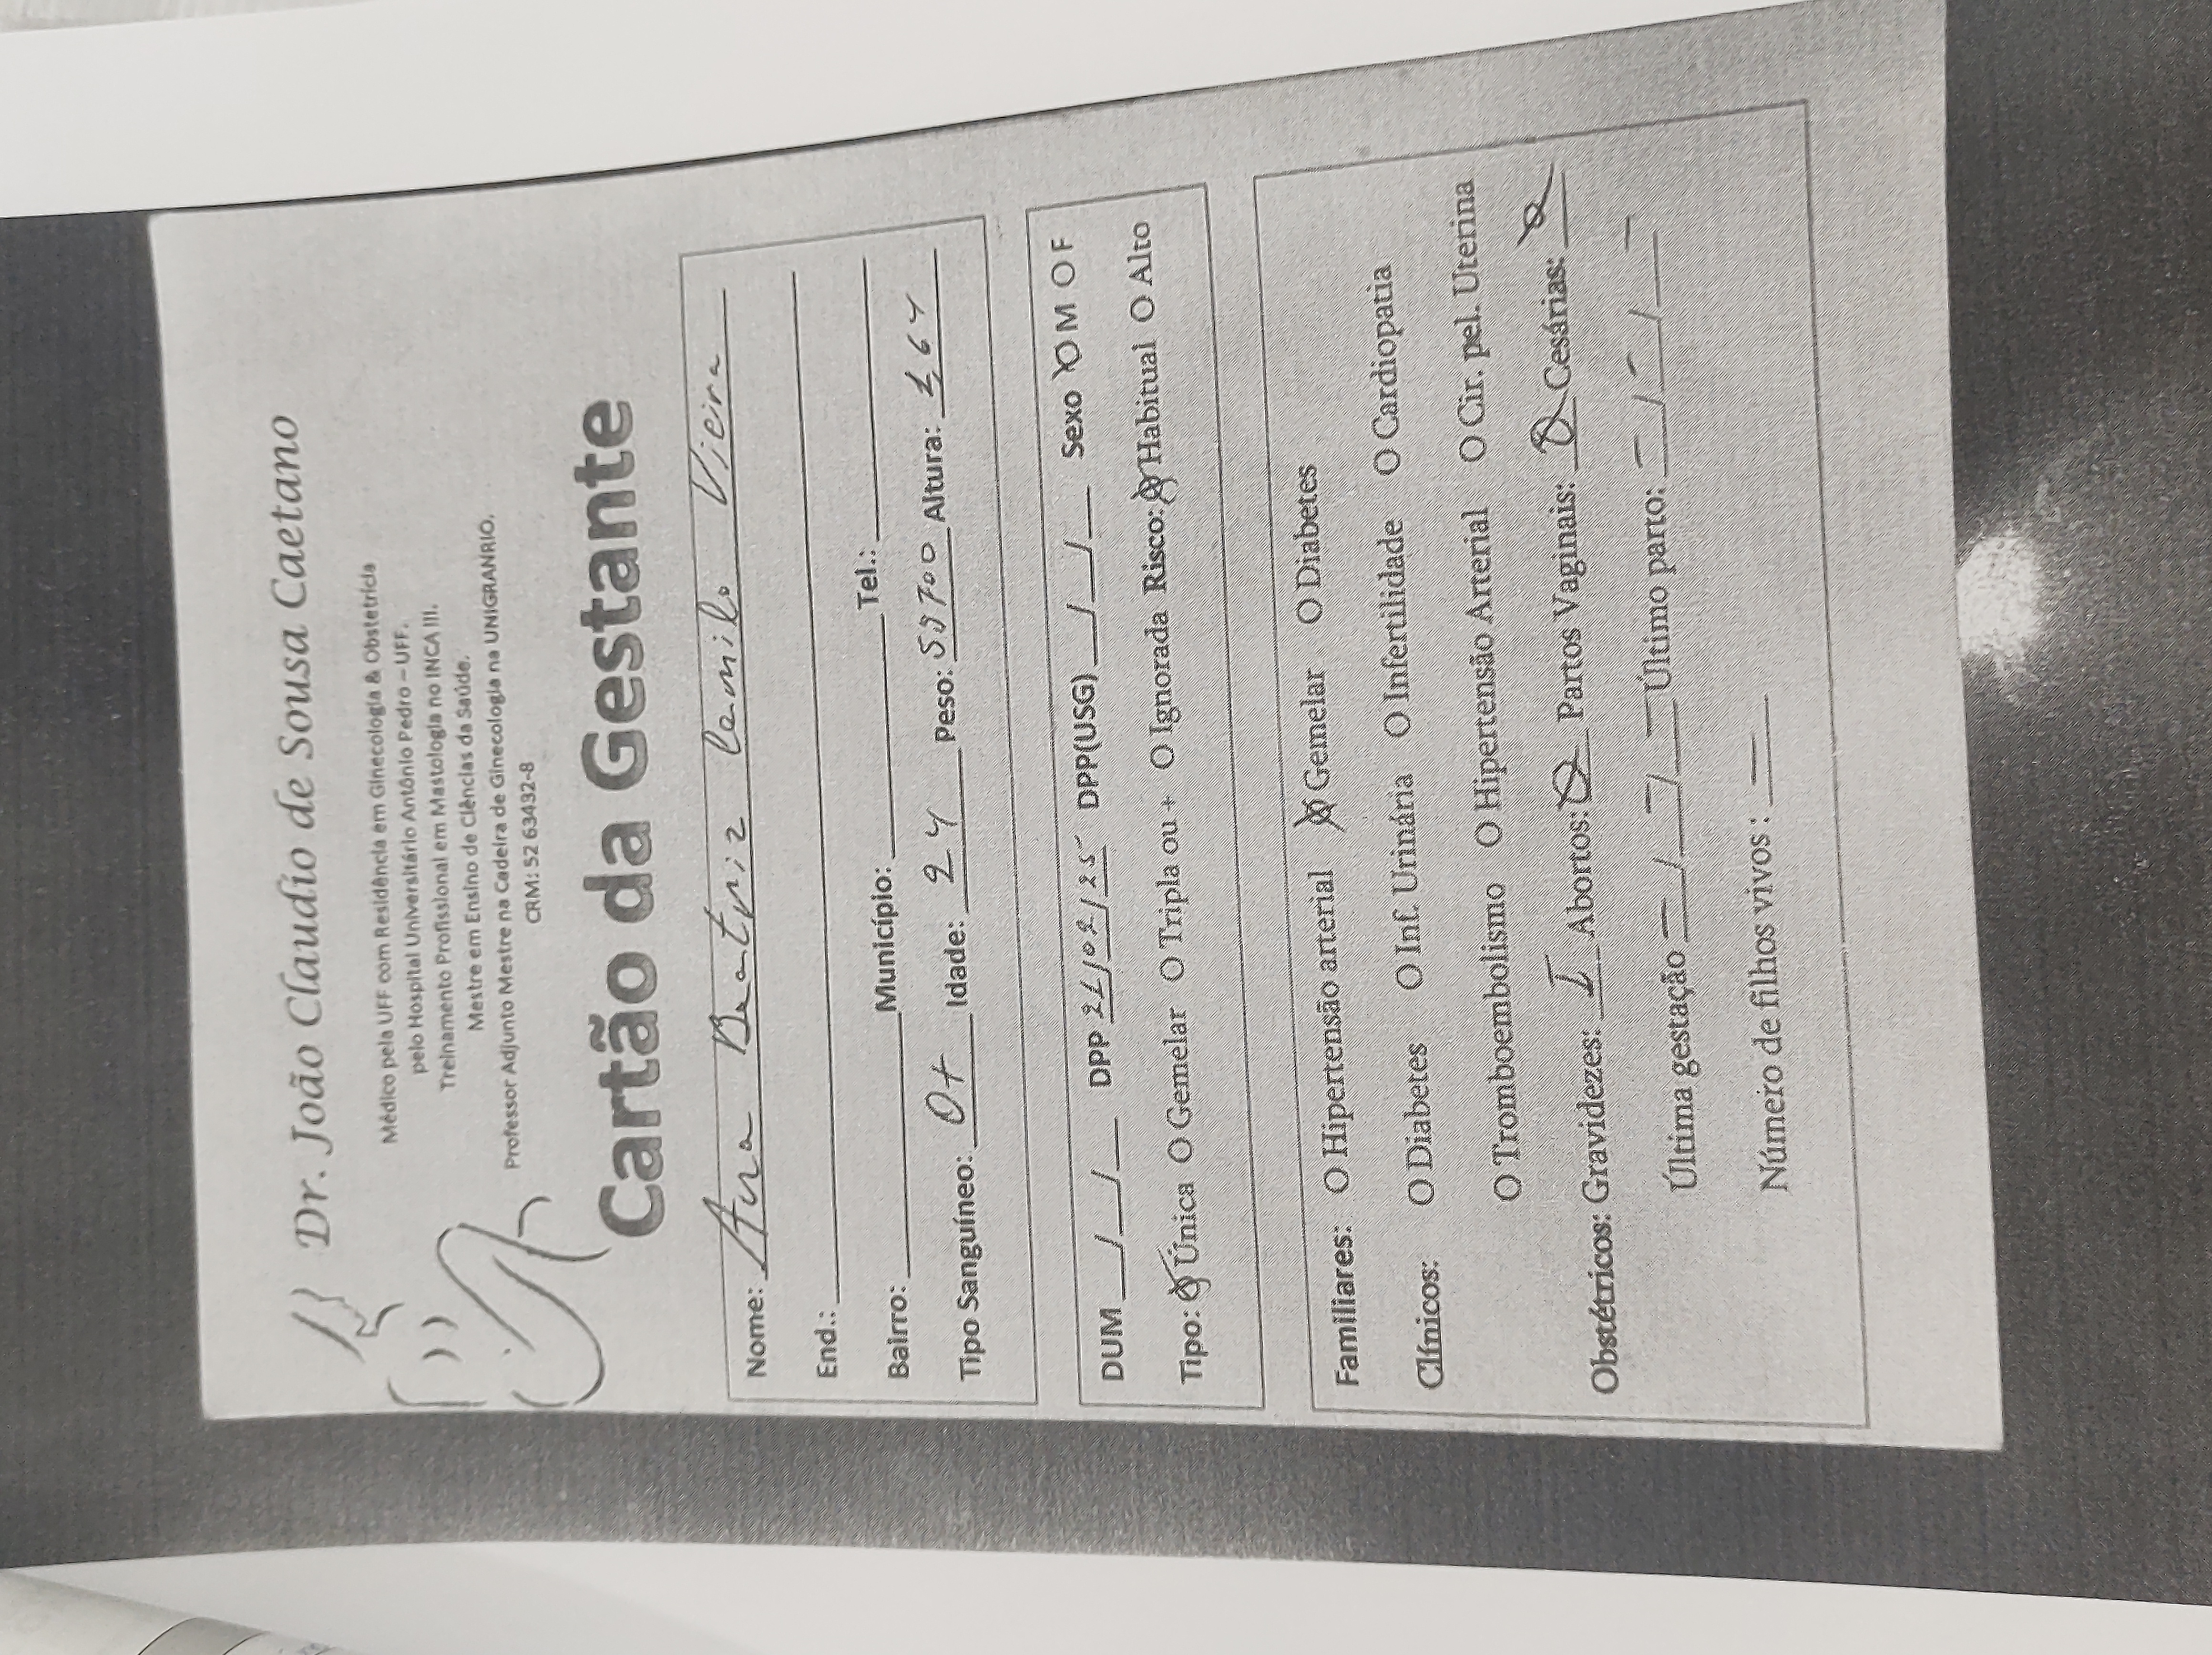 Dr. João Claudio de Sousa Caetano
Médico pela UFF com Residência em Ginecologia & Obstetrícia
pelo Hospital Universitário Antônio Pedro – UFF.
Treinamento Profissional em Mastologia no INCA III.
Mestre em Ensino de Ciências da Saúde.
Professor Adjunto Mestre na Cadeira de Ginecologia na UNIGRANRIO.
CRM: 52 63432-8
Cartão da Gestante
Nome: Ana Beatriz Camilo Vieira
End.:
Bairro: Município: Tel.:
Tipo Sanguíneo: O+ Idade: 24 Peso: Altura: 164
DUM / / DPP 21/02/25 DPP(USG) / / Sexo O M O F
Tipo: O Única O Gemelar O Tripla ou + O Ignorada Risco: O Habitual O Alto
Familiares: O Hipertensão arterial O Gemelar O Diabetes
Clínicos: O Diabetes O Inf. Urinária O Infertilidade O Cardiopatia
O Tromboembolismo O Hipertensão Arterial O Cir. pel. Uterina
Obstétricos: Gravidezes: I Abortos: Partos Vaginais: Cesárias:
Última gestação / / Último parto: / /
Número de filhos vivos :